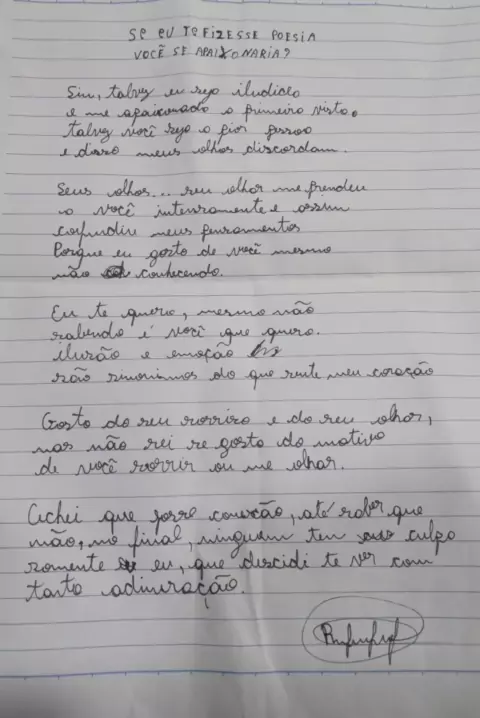 SE EU TE FIZESSE POESIA
VOCÊ SE APAIXONARIA?
Sim, talvez eu seja iludido
e me apaixonado a primeira vista.
talvez você seja a pior pessoa
e disso meus olhos discordam.
Seus olhos... seu olhar me prendeu
a você intensamente e assim
confundiu meus pensamentos
Porque eu gosto de você mesmo
não conhecendo.
Eu te quero, mesmo não
sabendo é você que quero.
ilusão e emoção
são sinonimos do que sente meu coração
Gosto do seu sorriso e do seu olhar,
mas não sei se gosto do motivo
de você sorrir ou me olhar.
Achei que fosse conexão, até saber que
não, no final, ninguem tem culpa
somente eu, que descidi te ver com
tanta admiração.